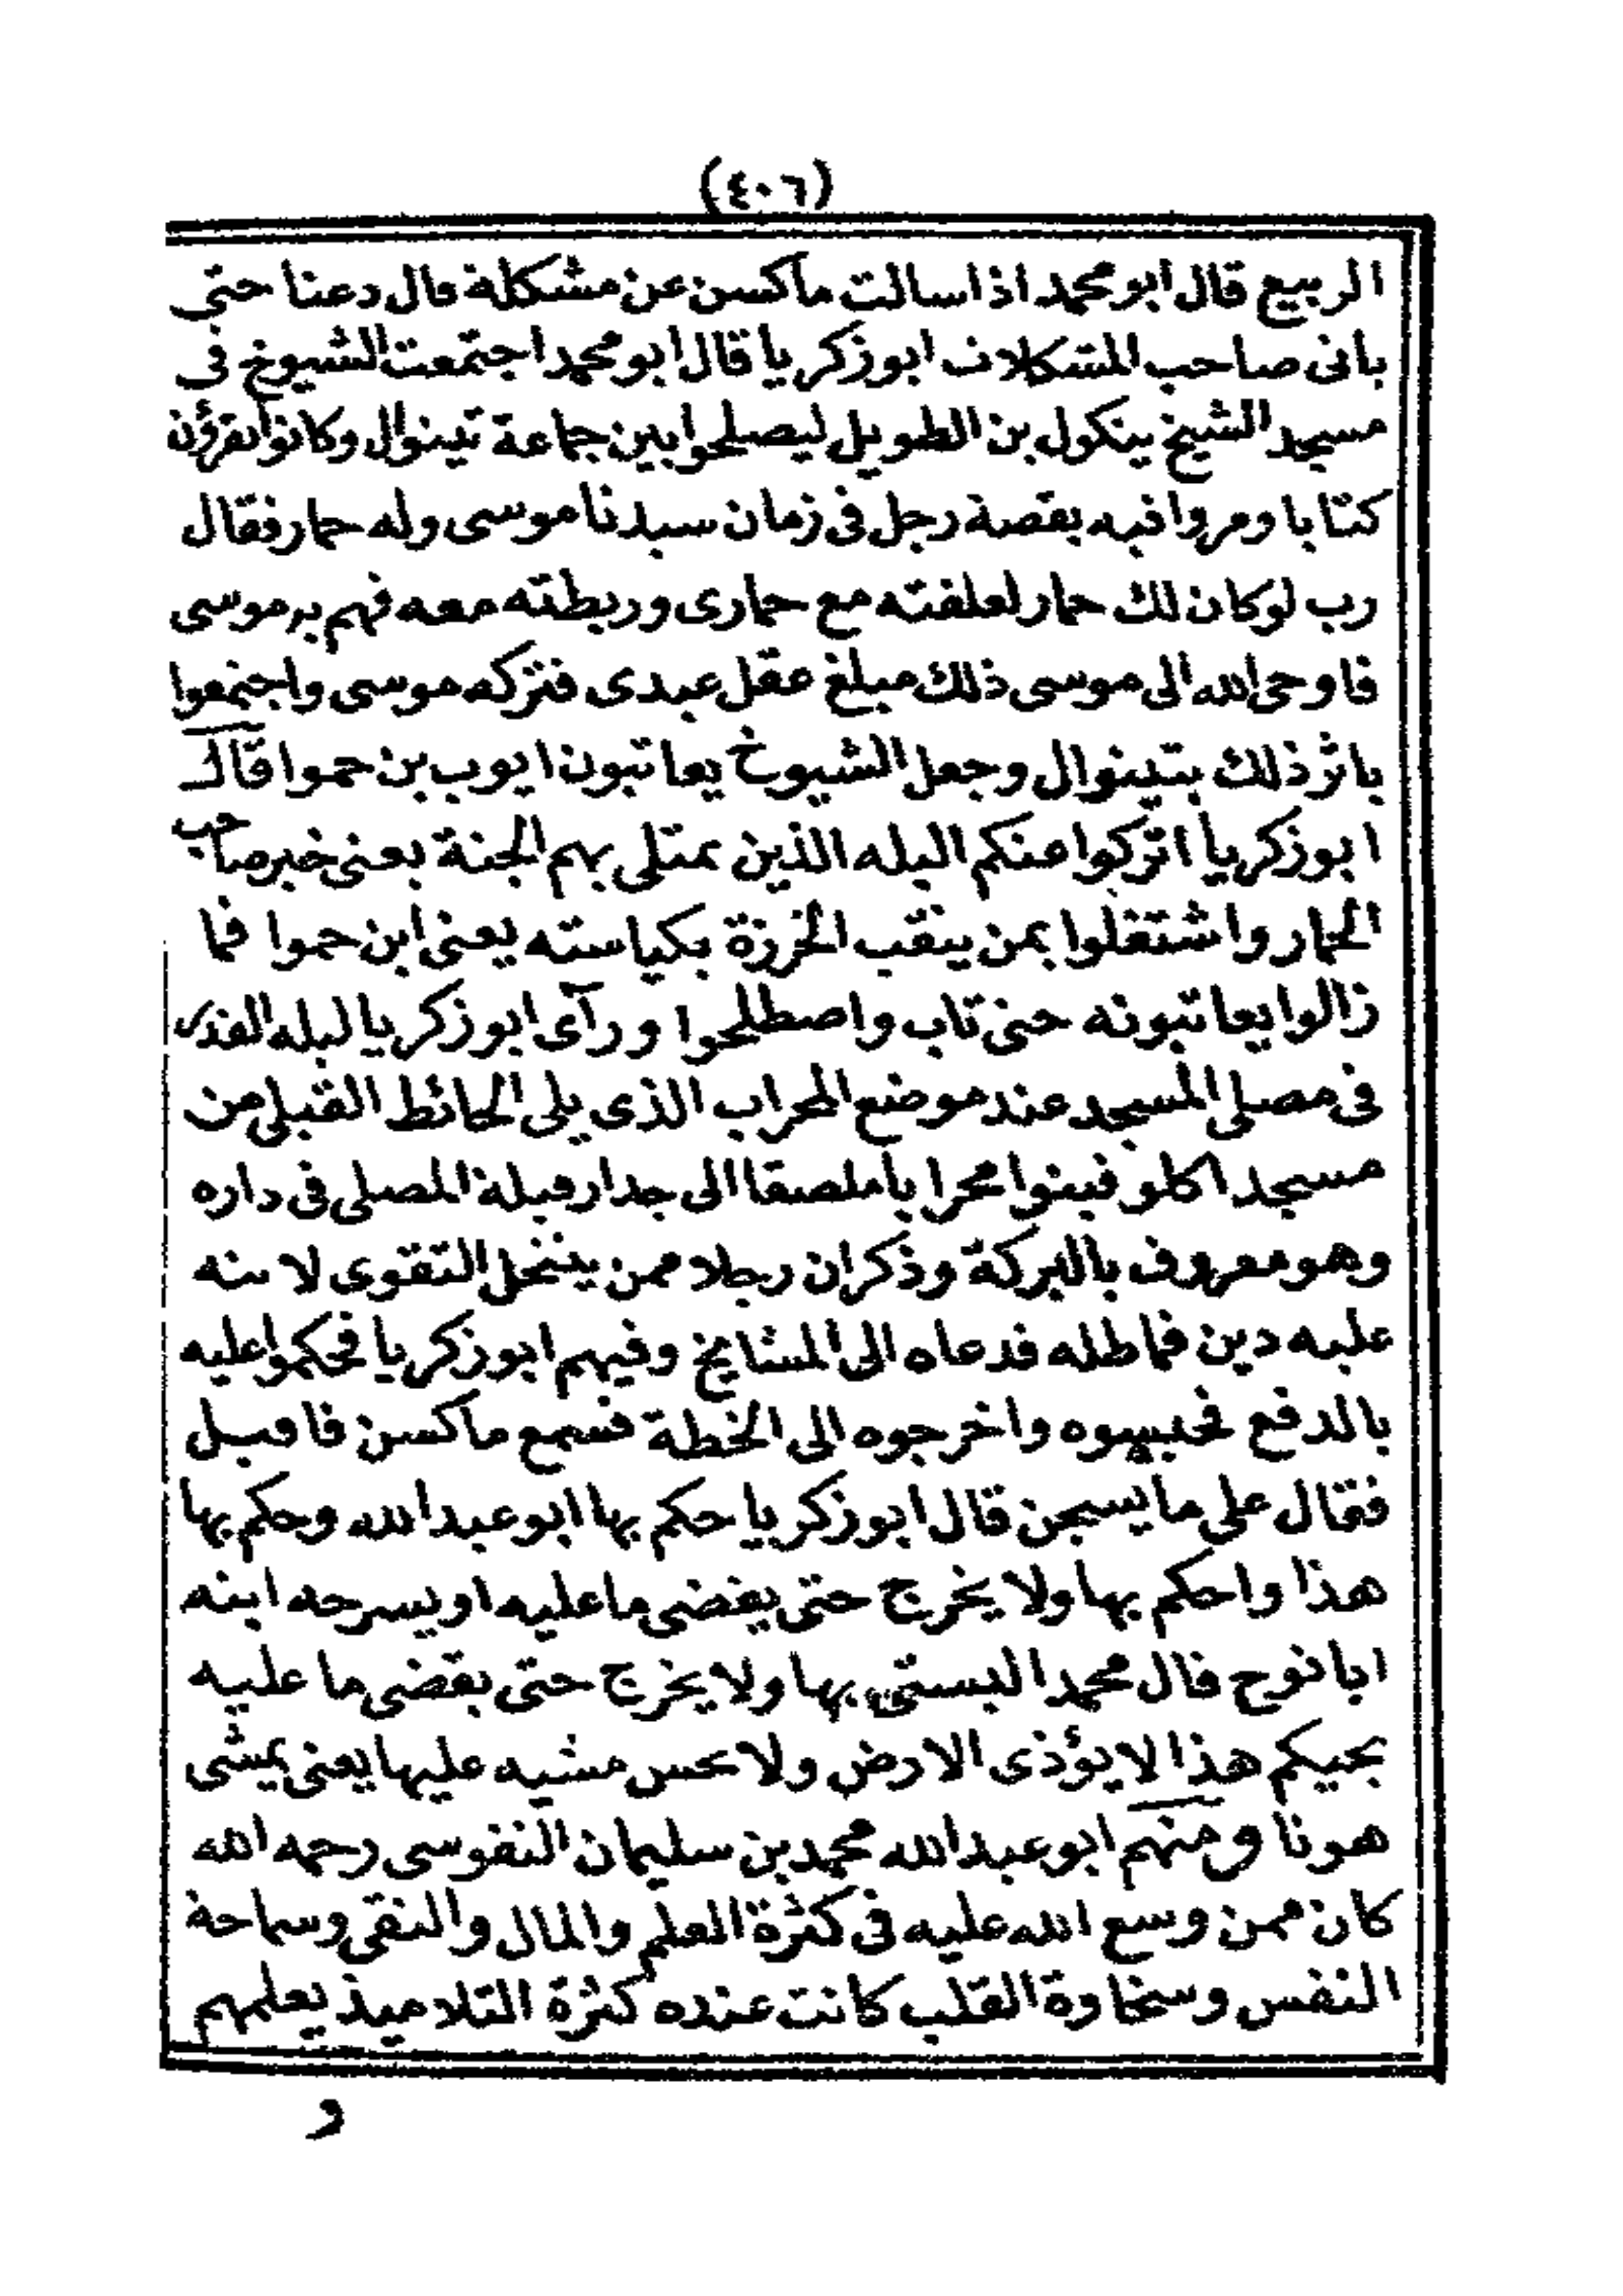 (٤٠٦)
الربيع قال ابو محمد اذا سالت ماكسن عن مشكلة قال دعنا حتى
ياتى صاحب المشكلات ابو زكريا قال ابو محمد اجتمعت الشيوخ فى
مسجد الشيخ ينكول بن الطويل ليصلحوا بين جماعة تينوال وكانوا يقرؤن
كتابا ومروا فيه بقصة رجل فى زمان سيدنا موسى وله حمار فقال
رب لو كان لك حمار لعلفته مع حمارى وربطته معه فهم به موسى
فاوحى الله الى موسى ذلك مبلغ عقل عبدى فتركه موسى واجتمعوا
باثر ذلك بتينوال وجعل الشيوخ يعاتبون ايوب بن حموا قال
ابو زكريا اتركوا عنكم البله الذين يمتلى بهم الجنة يعنى خبر صاحب
الحمار واشتغلوا بمن ينقب الخرزة بكياسته يعنى ابن حموا فما
زالوا يعاتبونه حتى تاب واصطلحوا ورآى ابو زكريا ليلة القدر
فى مصلى المسجد عند موضع المحراب الذى يلى الحائط القبلى من
مسجد اكلو فبنوا محرابا ملصقا الى جدار قبلة المصلى فى داره
وهو معروف بالبركة وذكر ان رجلا ممن ينتحل التقوى لابنه
عليه دين فماطله فدعاه الى المشايخ وفيهم ابو زكريا فحكموا عليه
بالدفع فحبسوه واخرجوه الى الخطة فسمع ماكسن فاقبل
فقال على ما يسجن قال ابو زكريا حكم بها ابو عبد الله وحكم بها
هذا واحكم بها ولا يخرج حتى يقضى ما عليه او يسرحه ابنه
ابا نوح قال محمد البستى بها ولا يخرج حتى يقضى ما عليه
بحيكم هذا لا يؤذى الارض ولا يحس مشيه عليها يعنى يمشى
هونا ومنهم ابو عبد الله محمد بن سليمان النفوسى رحمه الله
كان ممن وسع الله عليه فى كثرة العلم والمال والتقى وسماحة
النفس وسخاوة القلب كانت عنده كثرة التلاميذ يعلمهم
و